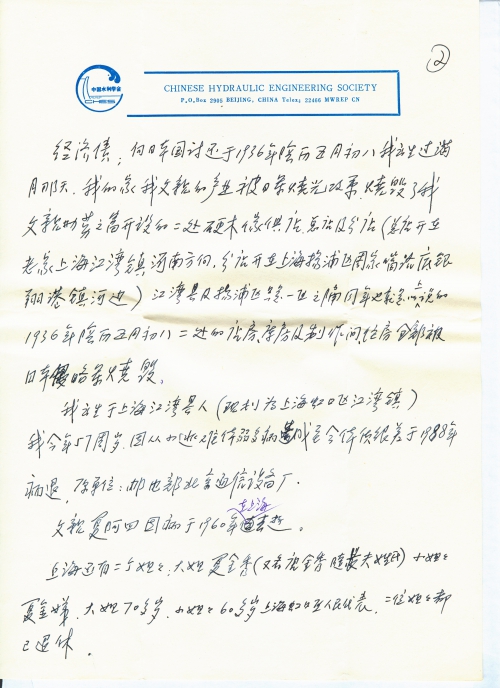 ②
中国水利学会
CHES
CHINESE HYDRAULIC ENGINEERING SOCIETY
P.O.Box 2905 BEIJING, CHINA Telex: 22466 MWREP CN
经济债, 向日本国讨还于1936年阴历五月初八我出生过满
月那天, 我的家我父亲的产业被日本烧光政策, 烧毁了我
父亲劳之而开设的二处硬木傢俱店, 总店及分店(总店开业
老家上海江湾镇河南方向, 分店开业上海杨浦区周家嘴路底银
翔港镇河边) 江湾县及杨浦区一之隔同年也就是以上说的
1936年阴历五月初八二处的店房, 库房及制作间住房全部被
日本暗杀火烧毁。
我出生于上海江湾县人(现划为上海虹口区江湾镇)
我今年57周岁, 因从小体弱多病成至今体质很差于1988年
病退, 原单位: 邮电部北京通信设备厂.
父亲夏阿田因病于1960年在上海去世.
上海还有二个姐姐, 大姐夏金秀(又名夫姓) 小姐姐
夏金娣, 大姐70多岁, 小姐姐60多岁上海虹口区人民代表, 二位姐姐都
已退休.